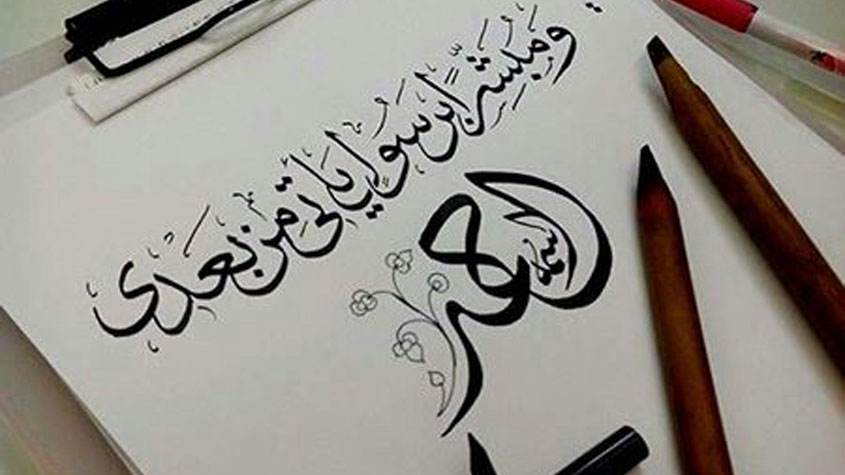 ومبشرًا برسولٍ يأتي من بعدي
اسمه
أحمد